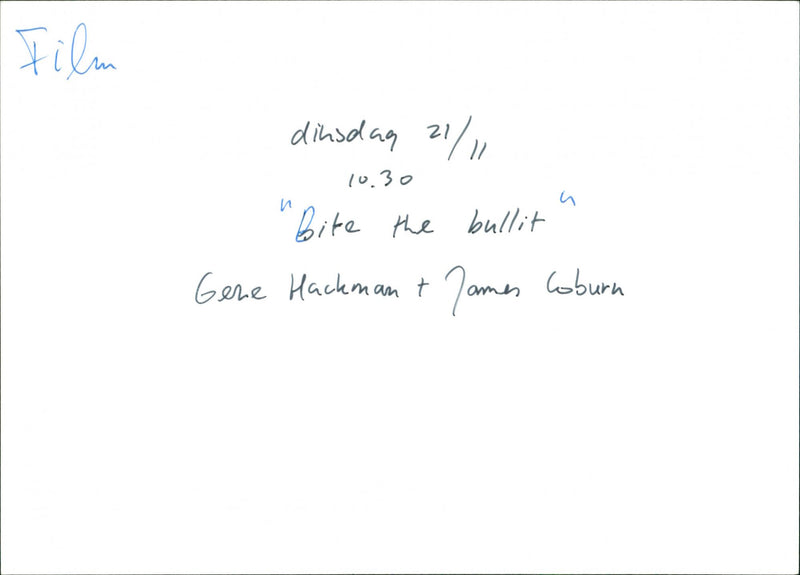 Film
dinsdag 21/11
10.30
"Bite the bullit"
Gene Hackman + James Coburn